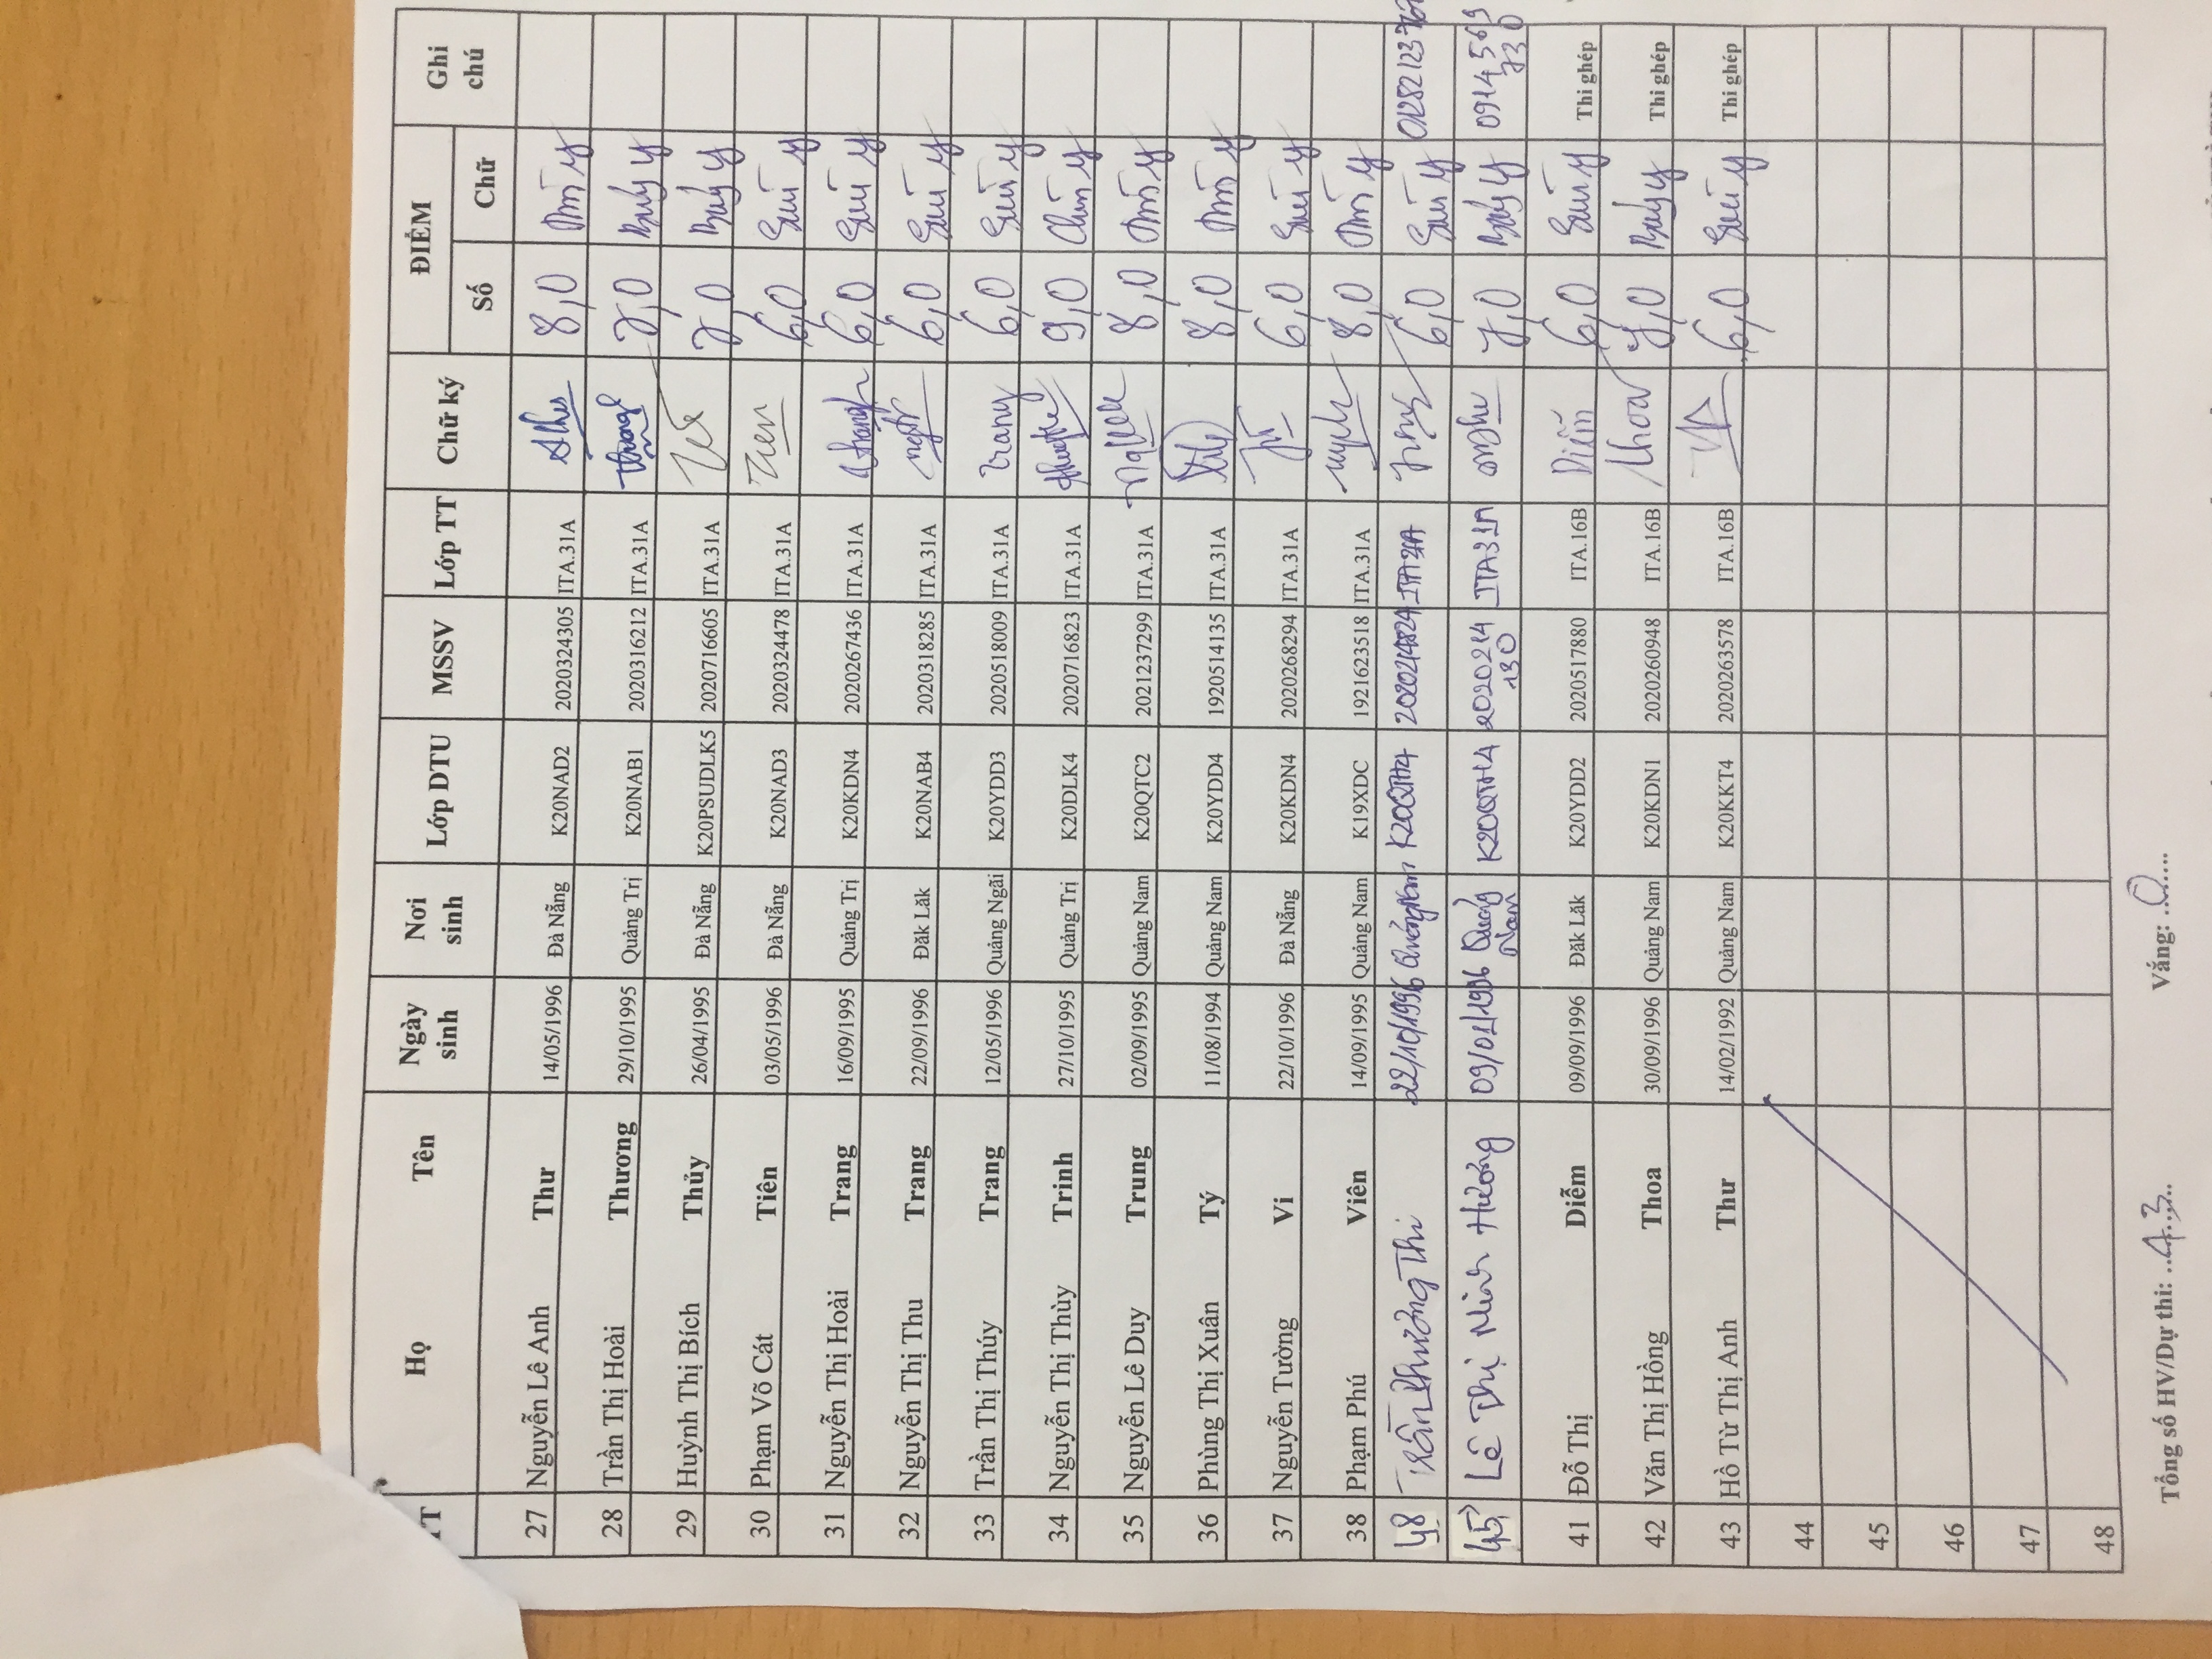 TT Họ Tên Ngày sinh Nơi sinh Lớp DTU MSSV Lớp TT Chữ ký ĐIỂM Ghi chú
Số Chữ
27 Nguyễn Lê Anh Thư 14/05/1996 Đà Nẵng K20NAD2 2020324305 ITA.31A 8,0
28 Trần Thị Hoài Thương 29/10/1995 Quảng Trị K20NAB1 2020316212 ITA.31A Thương 7,0 Bảy
29 Huỳnh Thị Bích Thủy 26/04/1995 Đà Nẵng K20PSUDLK5 2020716605 ITA.31A 7,0 Bảy
30 Phạm Võ Cát Tiên 03/05/1996 Đà Nẵng K20NAD3 2020324478 ITA.31A Tien 6,0 Sáu
31 Nguyễn Thị Hoài Trang 16/09/1995 Quảng Trị K20KDN4 2020267436 ITA.31A 6,0 Sáu
32 Nguyễn Thị Thu Trang 22/09/1996 Đăk Lăk K20NAB4 2020318285 ITA.31A 6,0 Sáu
33 Trần Thị Thúy Trang 12/05/1996 Quảng Ngãi K20YDD3 2020518009 ITA.31A Trang 6,0 Sáu
34 Nguyễn Thị Thùy Trinh 27/10/1995 Quảng Trị K20DLK4 2020716823 ITA.31A 9,0 Chín
35 Nguyễn Lê Duy Trung 02/09/1995 Quảng Nam K20QTC2 2021237299 ITA.31A 8,0
36 Phùng Thị Xuân Tý 11/08/1994 Quảng Nam K20YDD4 1920514135 ITA.31A 8,0
37 Nguyễn Tường Vi 22/10/1996 Đà Nẵng K20KDN4 2020268294 ITA.31A 6,0 Sáu
38 Phạm Phú Viên 14/09/1995 Quảng Nam K19XDC 1921623518 ITA.31A 8,0
48 Trần Phương Thi 22/10/1996 Quảng Nam K20QTH4 6,0 Sáu
45 Lê Thị Minh Hương 09/01/1996 Quảng Nam K20QTH4 2020214130 ITA31A 7,0 Bảy 0914569730
41 Đỗ Thị Diễm 09/09/1996 Đăk Lăk K20YDD2 2020517880 ITA.16B Diễm 6,0 Sáu Thi ghép
42 Văn Thị Hồng Thoa 30/09/1996 Quảng Nam K20KDN1 2020260948 ITA.16B Thoa 7,0 Bảy Thi ghép
43 Hồ Từ Thị Anh Thư 14/02/1992 Quảng Nam K20KKT4 2020263578 ITA.16B 6,0 Sáu Thi ghép
44
45
46
47
48
Tổng số HV/Dự thi: ..43.. Vắng: ..0....